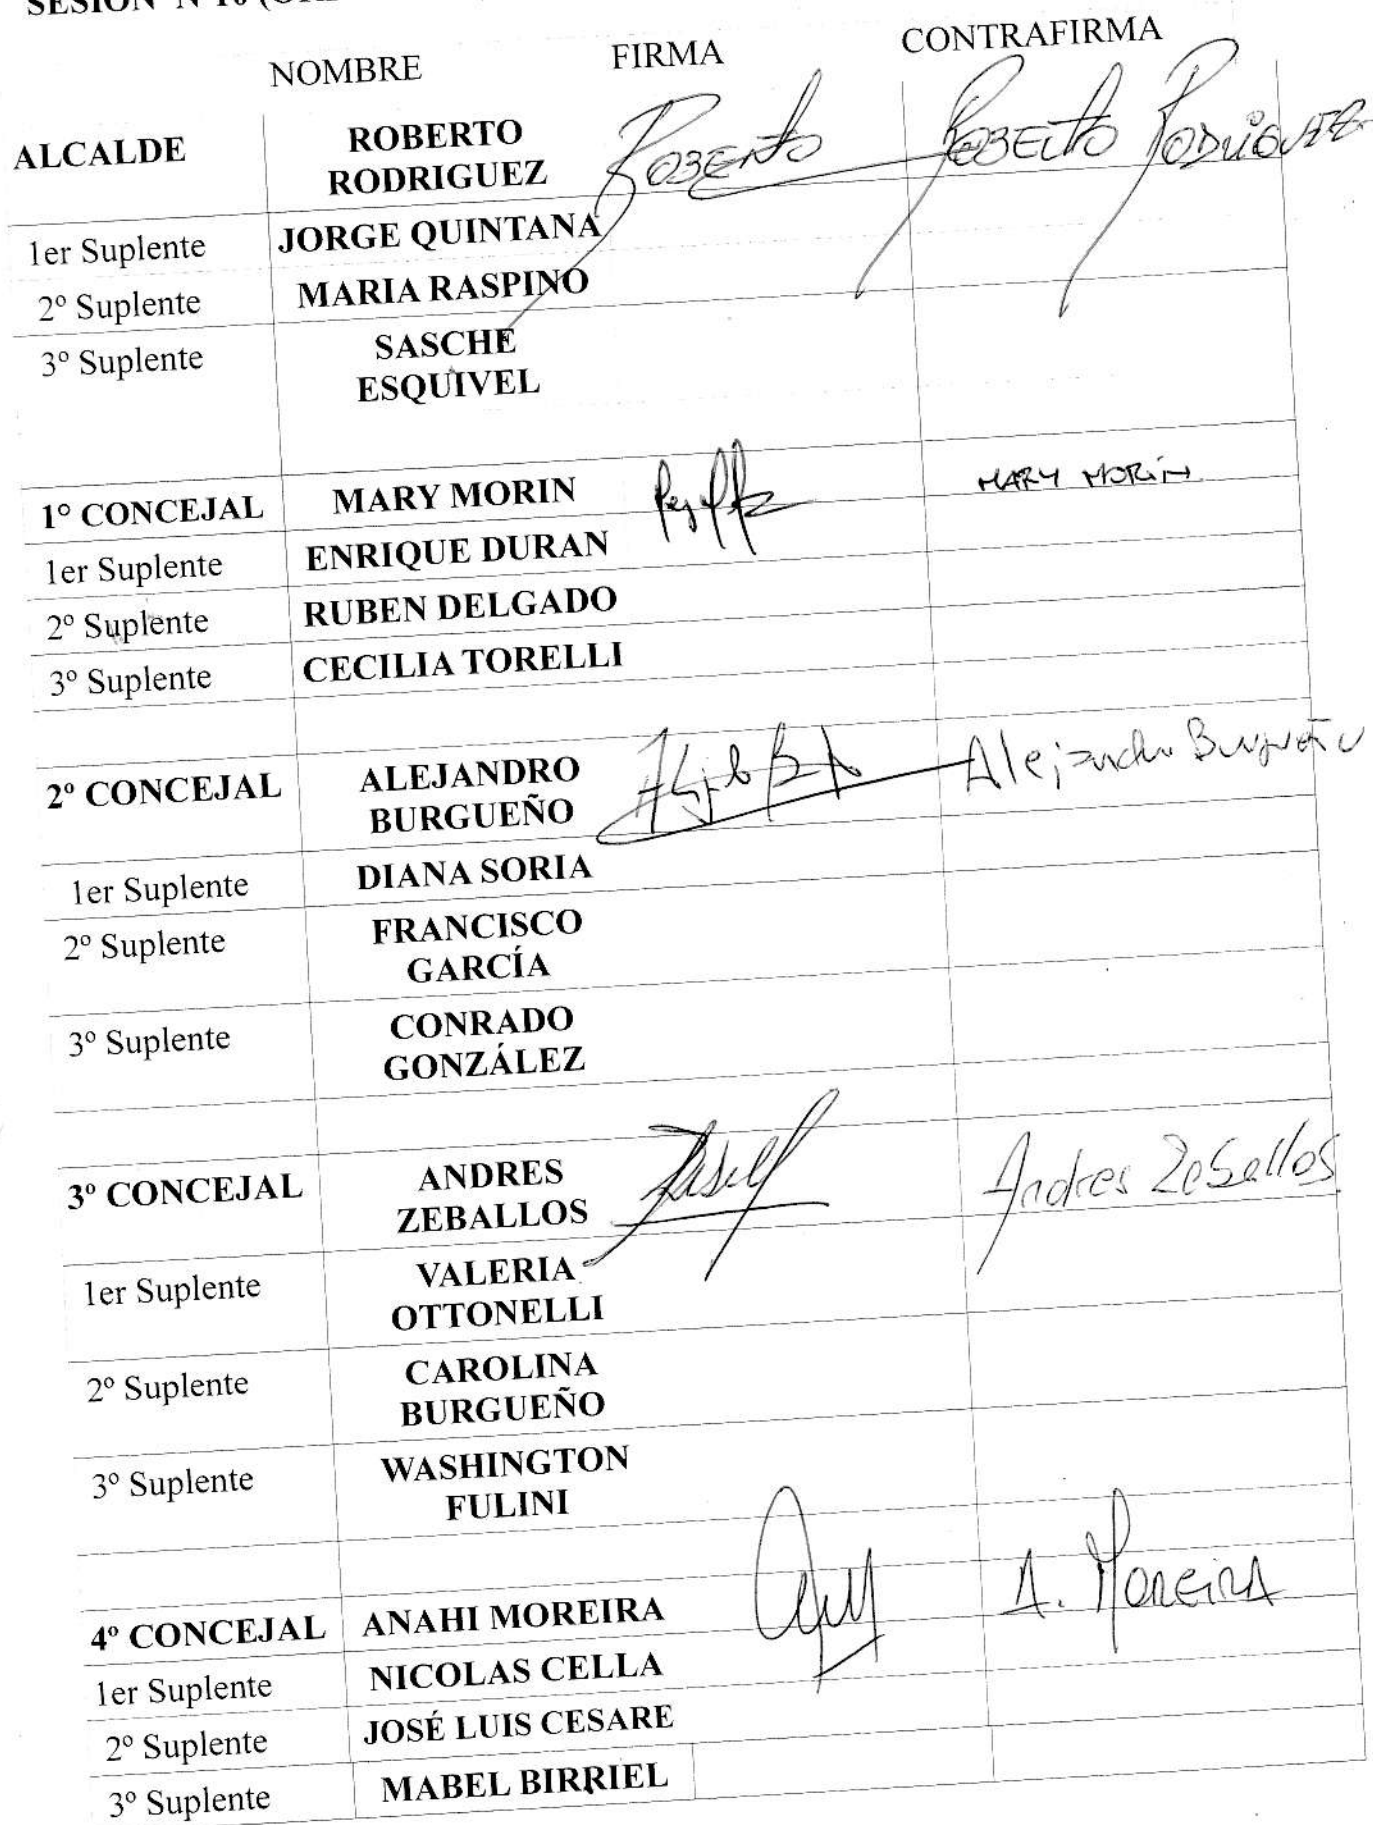 NOMBRE FIRMA CONTRAFIRMA
ALCALDE ROBERTO RODRIGUEZ Roberto Roberto Rodriguez
1er Suplente JORGE QUINTANA
2º Suplente MARIA RASPINO
3º Suplente SASCHE ESQUIVEL
1º CONCEJAL MARY MORIN MARY MORiN
1er Suplente ENRIQUE DURAN
2º Suplente RUBEN DELGADO
3º Suplente CECILIA TORELLI
2º CONCEJAL ALEJANDRO BURGUEÑO Alejandro Burgueño
1er Suplente DIANA SORIA
2º Suplente FRANCISCO GARCÍA
3º Suplente CONRADO GONZÁLEZ
3º CONCEJAL ANDRES ZEBALLOS Andres Zeballos
1er Suplente VALERIA OTTONELLI
2º Suplente CAROLINA BURGUEÑO
3º Suplente WASHINGTON FULINI
4º CONCEJAL ANAHI MOREIRA A. MOREIRA
1er Suplente NICOLAS CELLA
2º Suplente JOSÉ LUIS CESARE
3º Suplente MABEL BIRRIEL